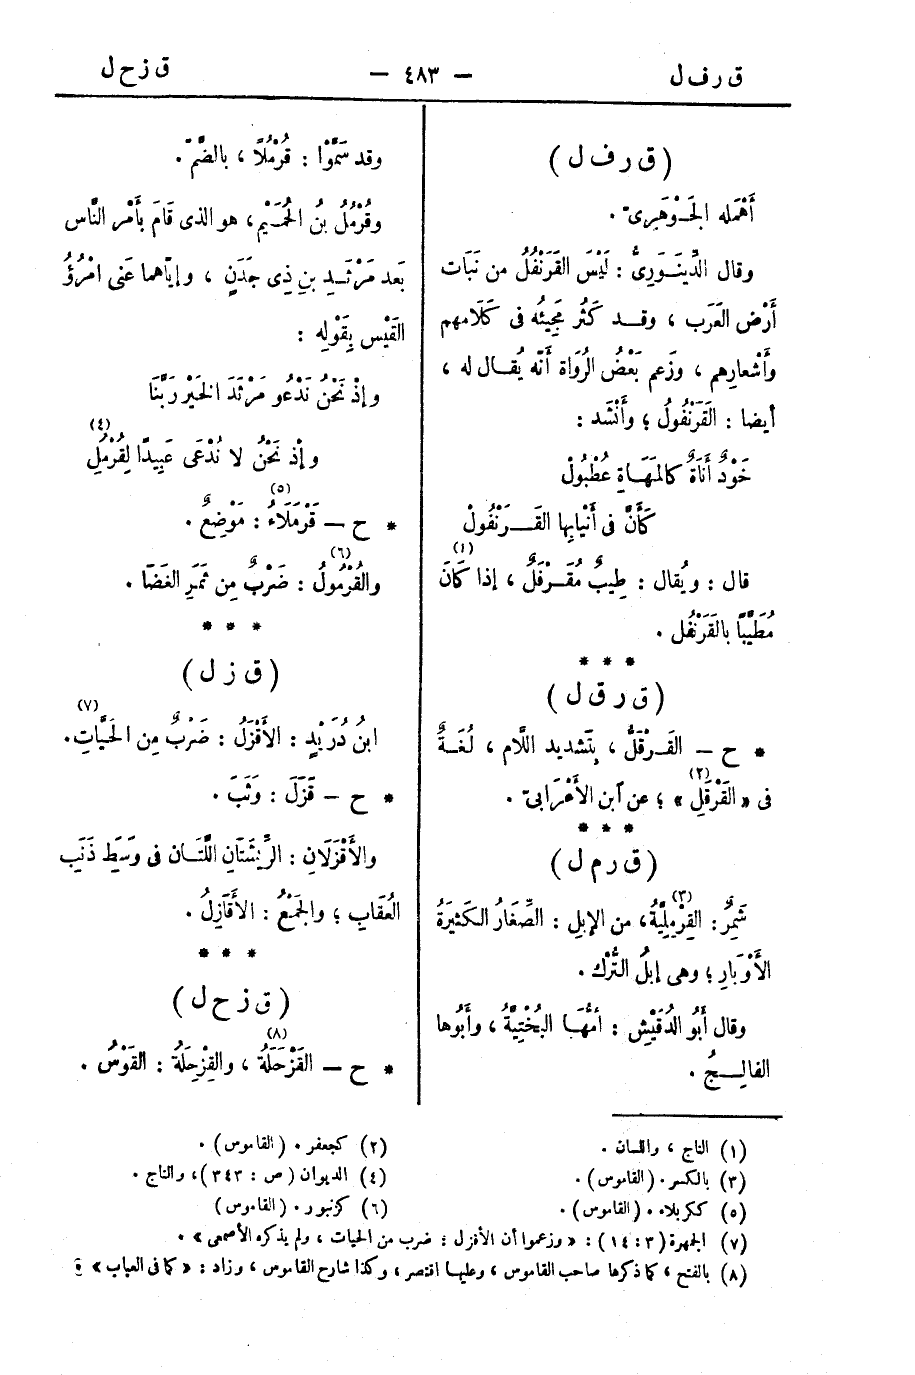 ق ر ف ل — ٤٨٣ — ق ز ح ل
( ق ر ف ل )
أَهْمَله الجَوْهَرِىّ .
وقال الدِّينَوَرِىُّ : لَيْسَ القَرَنْفُلُ من نَبَات
أَرْض العَرَب ، وقد كَثُر مَجِيئُه فى كَلَامهم
وأَشْعارِهم ، وزَعم بَعْضُ الرُوَاة أنّه يُقال له ،
أيضا : القَرَنْفُولُ ؛ وأَنْشَد :
خَوْدٌ أَنَاةٌ كالمَهَاةِ عُطْبُولْ
كَأَنَّ فى أَنْيابِها القَرَنْفُولْ
قال : ويُقال : طِيبٌ مُقَرْفَلٌ (١) ، إذا كَانَ
مُطَيَّبًا بالقَرَنْفُل .
* * *
( ق ر ق ل )
* ح — القَرْقَلُّ ، بتَشديد اللَّام ، لُغَةٌ
فى « القَرْقَلِ (٢) » ؛ عن آبن الأَعْرَابىّ .
* * *
( ق ر م ل )
شَمِرٌ : القِرْمِلِيَّةُ (٣) ، من الإبلِ : الصِّغَارُ الكَثيرَةُ
الأَوْبَارِ ؛ وهى إبلُ التُّرْك .
وقال أَبُو الدُقَيْشِ : أُمُّهَا البُخْتِيَّةُ ، وأَبُوها
الفالِجُ .
وقد سَمَّوْا : قُرْمُلًا ، بالضَّمّ .
وقُرْمُلُ بنُ الحُمَيْمِ ، هو الذى قَامَ بأَمْر النَّاس
بَعد مَرْثَدِ بنِ ذِى جَدَنٍ ، وإيّاهما عَنى امْرُؤُ
القَيْس بِقَوْلِه :
وإذْ نَحْنُ نَدْعُو مَرْثَدَ الخَيْر رَبَّنَا
وإذْ نَحْنُ لا نُدْعَى عَبِيدًا لِقُرْمُلِ (٤)
* ح — قَرْمَلَاءُ (٥) : مَوْضِعٌ .
والقُرْمُولُ (٦) : ضَرْبٌ مِن ثَمَرِ الغَضَا .
* * *
( ق ز ل )
ابنُ دُرَيْدٍ : الأَقْزَلُ : ضَرْبٌ مِن الحَيَّاتِ (٧) .
* ح — قَزَلَ : وَثَبَ .
والأَقْزَلانِ : الرِّيشَتَانِ اللَّتَان فى وَسَط ذَنَبِ
العُقَابِ ؛ والجَمْعُ : الأَقَازِلُ .
* * *
( ق ز ح ل )
* ح — القَزْحَلَةُ (٨) ، والقِزْحِلَةُ : القَوْسُ .
(١) التاج ، واللسان .
(٢) كجعفر . (القاموس) .
(٣) بالكسر . (القاموس) .
(٤) الديوان (ص : ٣٤٣) ، والتاج .
(٥) ككربلاء . (القاموس) .
(٦) كزنبور . (القاموس)
(٧) الجمهرة (٣ : ١٤) : « وزعموا أن الأقزل : ضرب من الحيات ، ولم يذكره الأصمعى » .
(٨) بالفتح ، كما ذكرها صاحب القاموس ، وعليها اقتصر ، وكذا شارح القاموس ، وزاد : « كما فى العباب »